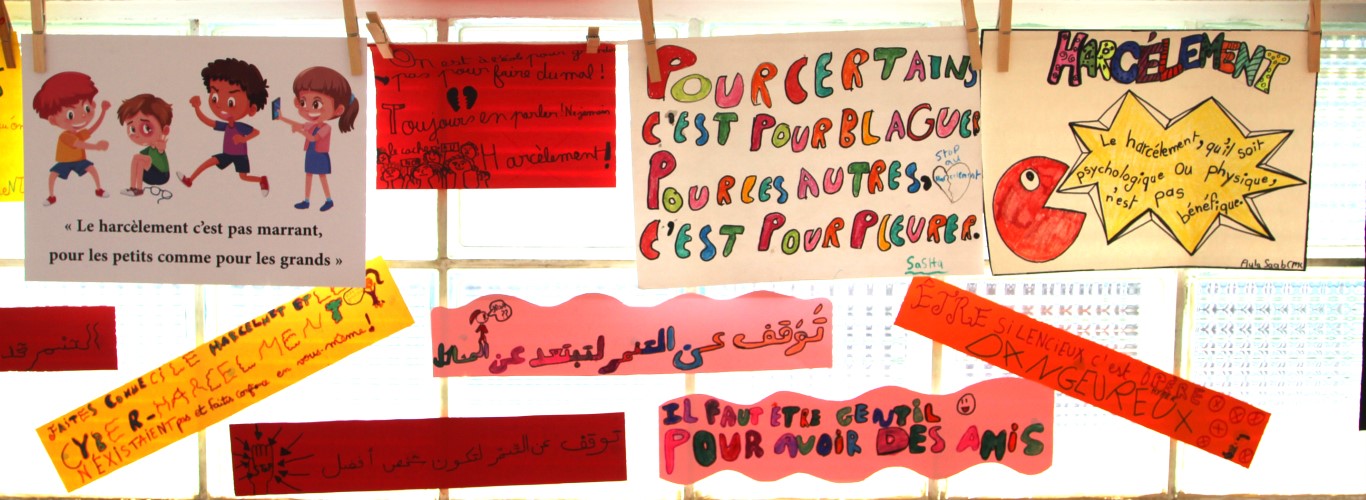 « Le harcèlement c'est pas marrant,
pour les petits comme pour les grands »
On est à l'école pour
pas pour faire du mal !
Toujours en parler ! Ne jamais
le cacher
Harcèlement !
POUR CERTAINS,
C'EST POUR BLAGUER
POUR LES AUTRES,
C'EST POUR PLEURER.
STOP
au
Harcèlement
SaSHa
HARCÉLEMENT
Le harcélement, qu'il soit
psychologique ou physique,
n'est pas
bénéfique.
Ayla Saab CM1
التنمر قد
FAITES COMME SI LE HARCELMENT ET LE
CYBER-HARCELMENT
N'EXISTAIENT pas et faites confiance en vous-même !
تَوَقَف عن التنمر لتبتعد عن المشاكل
ÊTRE SILENCIEUX c'est
DANGEUREUX
توقف عن التنمر لتكون شخص أفضل
IL FAUT ÊTRE GENTIL
POUR AVOIR DES AMIS